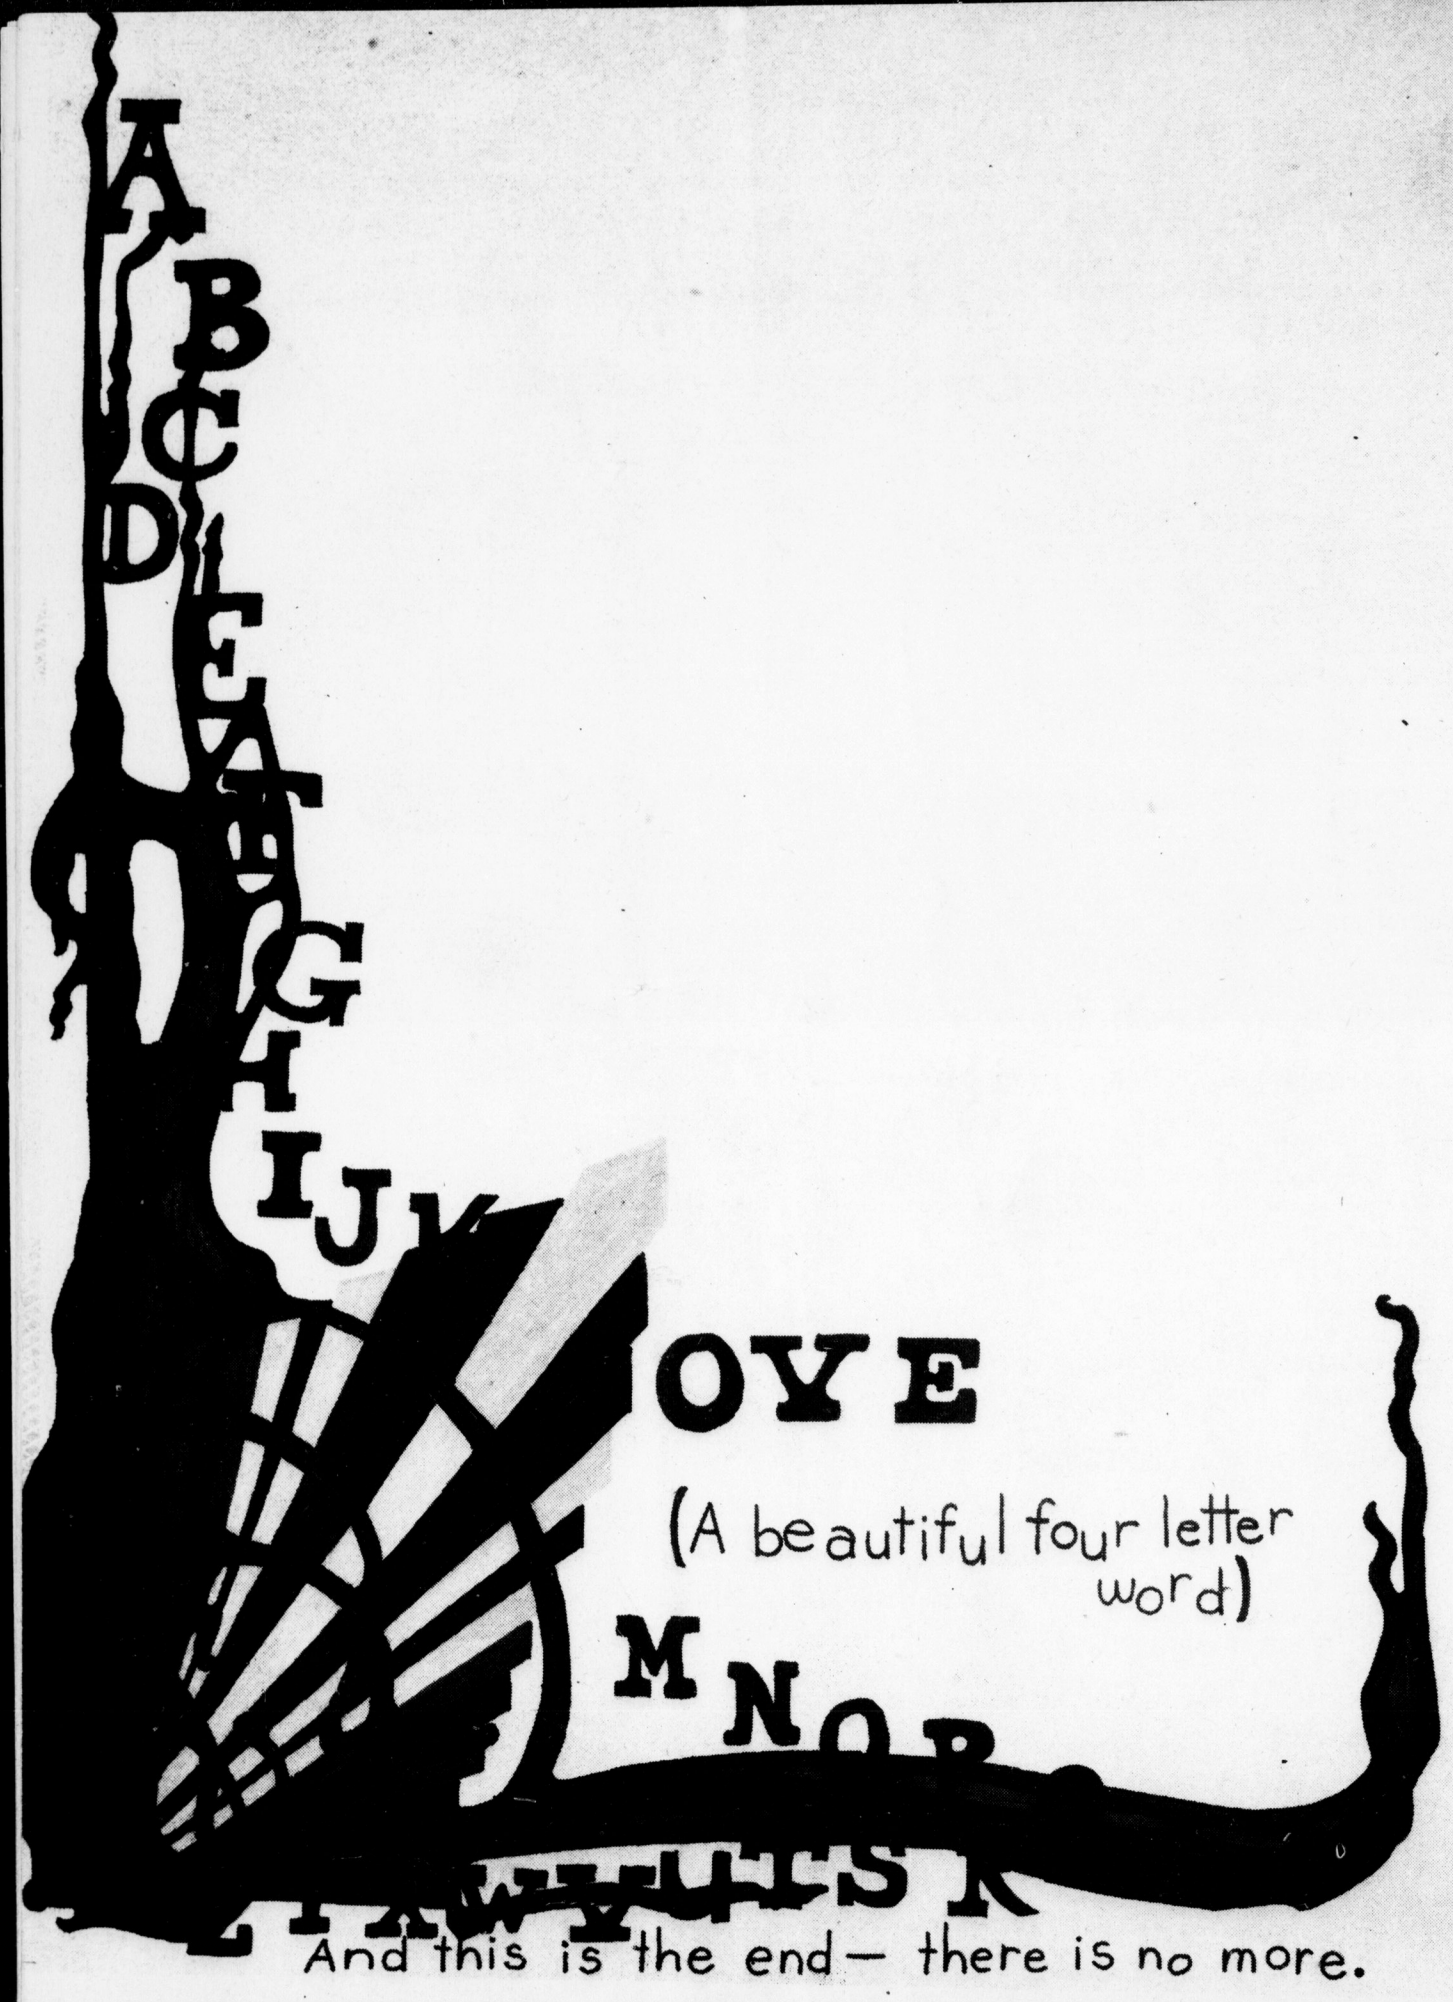 A
B
C
D
E
A
T
G
H
I
J
K
OVE
(A beautiful four letter
word)
M
N
O
P
Z Y X W V U T S R
And this is the end — there is no more.